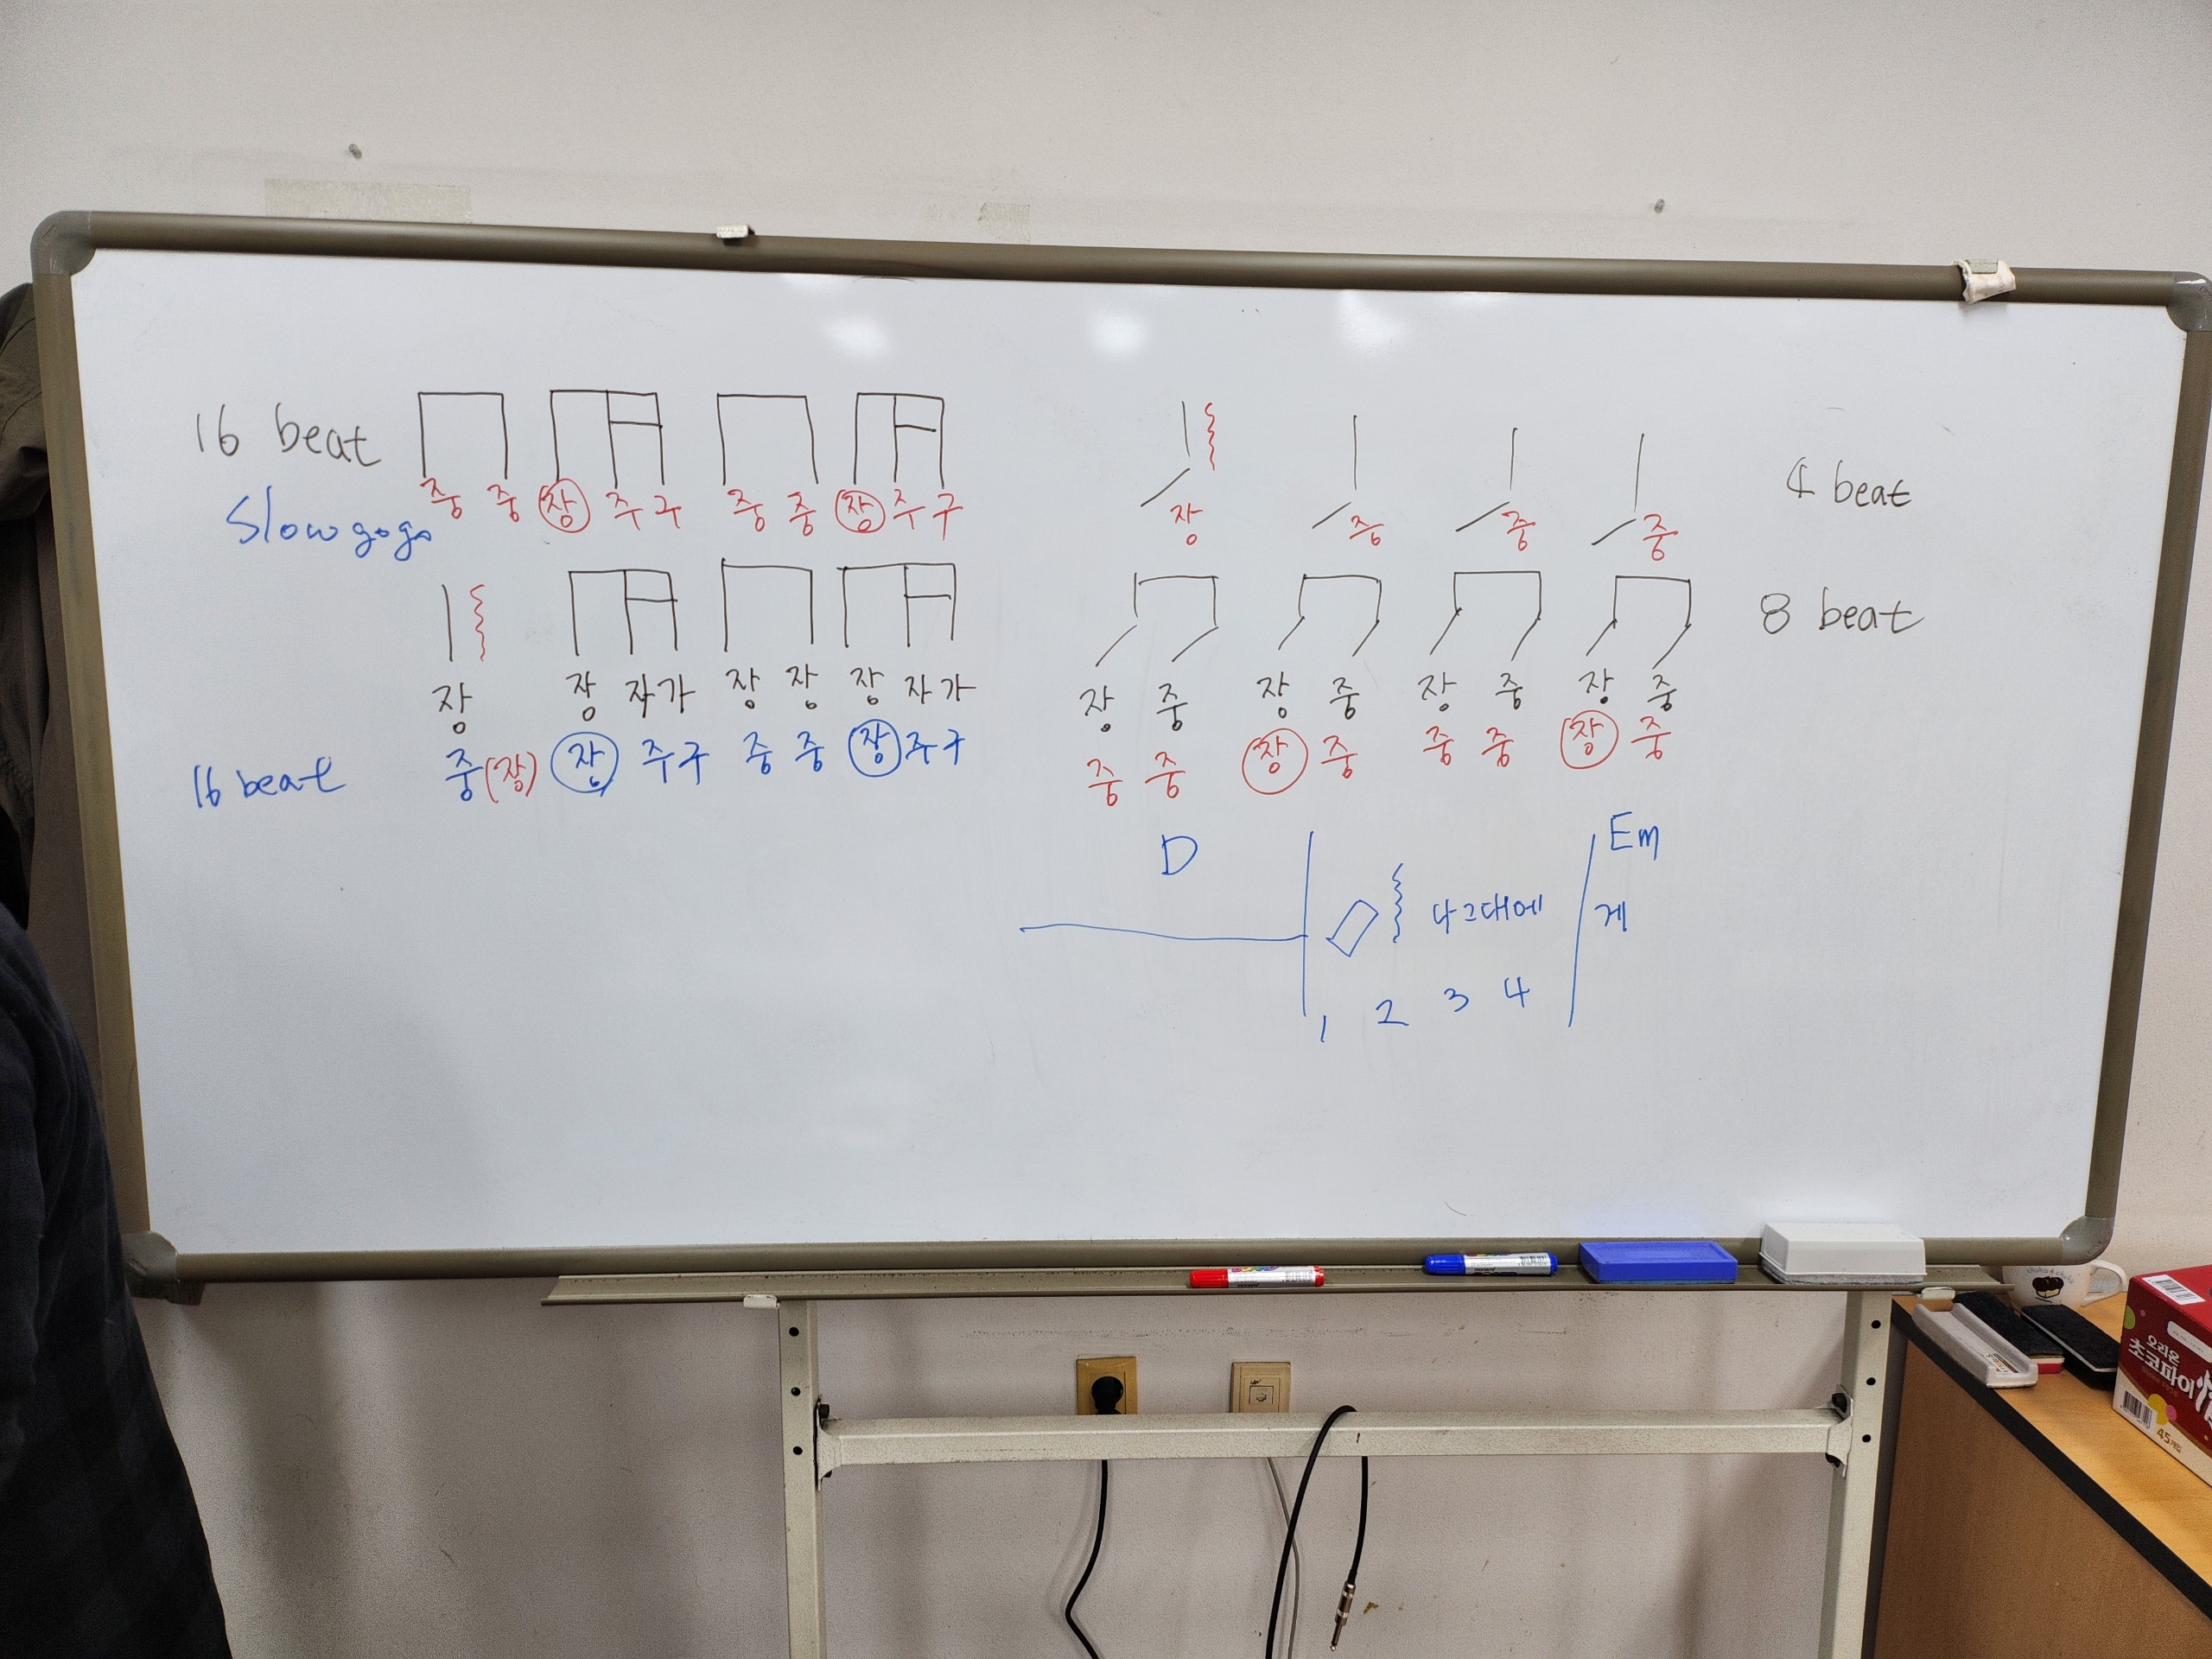 16 beat
중 중 장 주구 중 중 장 주구
Slow gogo
장 장 자가 장 장 장 자가
16 beat 중(장) 장 주구 중 중 장 주구
장 중 중 중 4 beat
8 beat
장 중 장 중 장 중 장 중
중 중 장 중 중 중 장 중
D Em
나그대에 게
1 2 3 4
오리온
초코파이
45개입